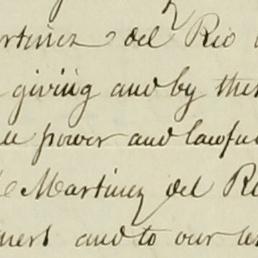 artinez del Rio
giving and by the
power and lawfu
Martinez del Ri
ners and to our